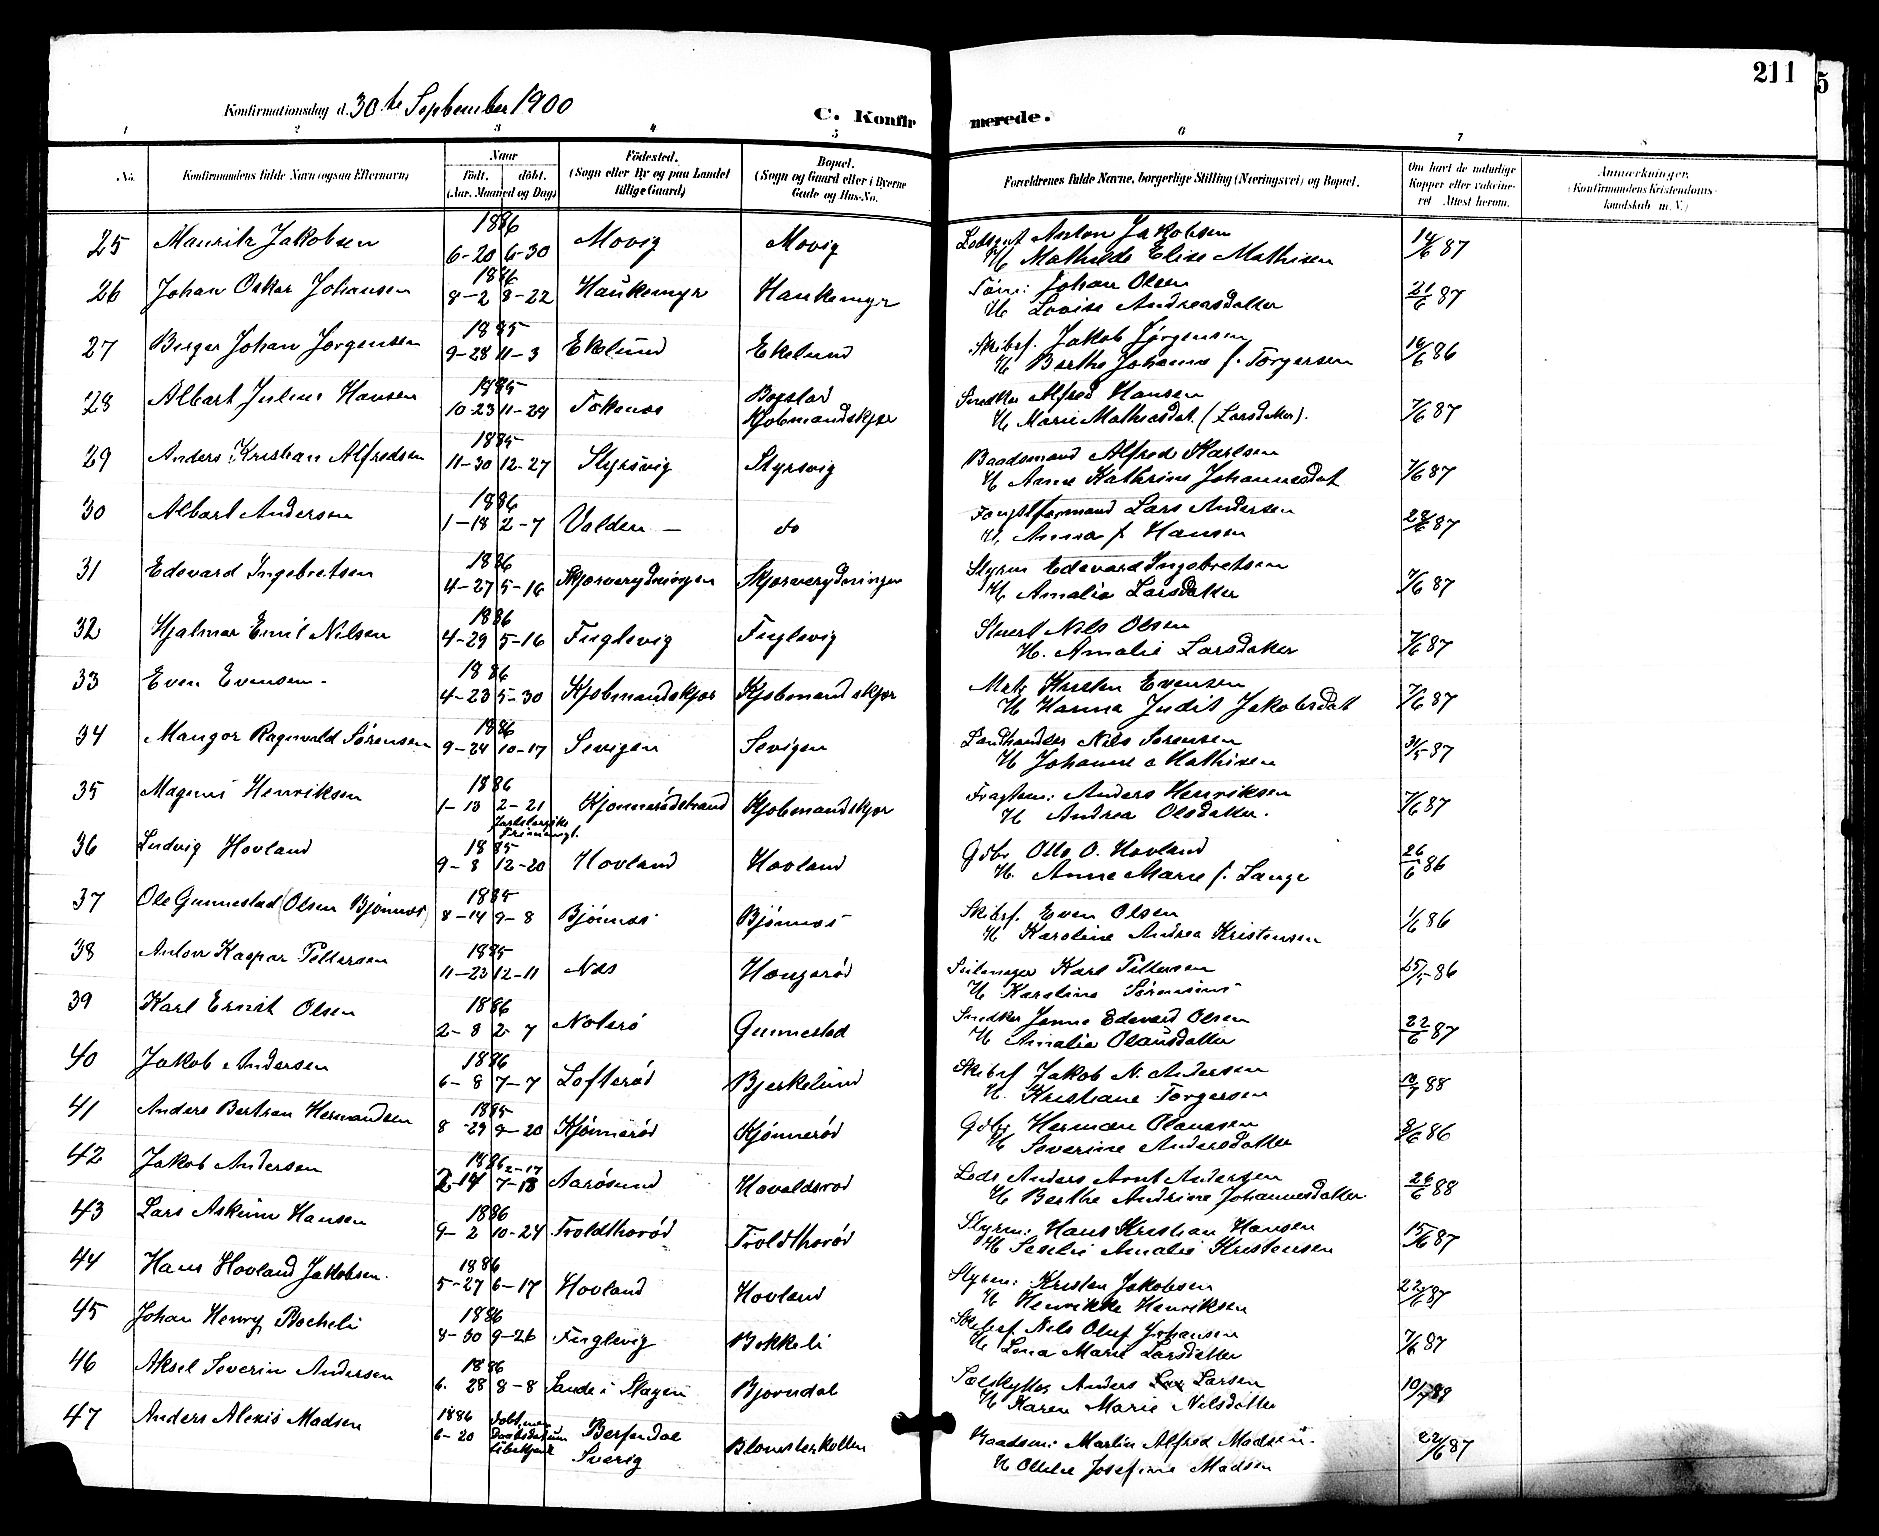 211
5
Konfirmationsdag d. 30te September 1900
C. Konfir merede.
1 2 3 4 5 6 7 8
No.
Konfirmandens fulde Navn (ogsaa Efternavn)
Naar
født. døbt.
(Aar, Maaned og Dag)
Fødested.
(Sogn eller By og paa Landet
tillige Gaard)
Bopæl.
(Sogn og Gaard eller i Byerne
Gade og Hus-No.
Forældrenes fulde Navne, borgerlige Stilling (Næringsvei) og Bopæl.
Om havt de naturlige
Kopper eller vaccine-
ret Attest herom.
Anmærkninger.
(Konfirmandens Kristendoms-
kundskab m. V.)
25 Mauritz Jakobsen 1886 6-20 6-30 Movig Movig Anton Jakobsen
H Mathilde Elise Mathisen 14/6 87
26 Johan Oskar Johansen 1886 8-2 8-22 Haukemyr Haukemyr Tørm: Johan Olsen
H Lovise Andreasdatter 21/6 87
27 Berger Johan Jørgensen 1885 9-28 11-3 Ekelund Ekelund Skibsf. Jakob Jørgensen
H Berthe Johanne f. Torgersen 16/6 86
28 Albert Julius Hansen 1885 10-23 11-29 Tokenes Kjøbmandskjær Snedker Alfred Hansen
H Marie Mathiasdat. (Larsdatter). 7/6 87
29 Anders Kristian Alfredsen 1885 11-30 12-27 Styrsvig Styrsvig Baadsmand Alfred Karlsen
H Anne Kathrine Johannesdat 7/6 87
30 Albert Andersen 1886 1-18 2-7 Valden — do Lars Andersen
H. Anna f. Hansen 28/6 87
31 Edevard Ingebretsen 1886 4-27 5-16 Skjærverydningen Skjærverydningen Styrm Edevard Ingebretsen
H Amalie Larsdatter 7/6 87
32 Hjalmar Emil Nilsen 1886 4-29 5-16 Fuglevig Fuglevig Stuert Nils Olsen
H. Amalie Larsdatter 7/6 87
33 Even Evensen 1886 4-23 5-30 Kjøbmandskjær Kjøbmandskjær Matr Kristen Evensen
H Hanna Judit Jakobsdat 7/6 87
34 Mangor Ragnvald Sørensen 1886 9-24 10-17 Sevigen Sevigen Landhandler Nils Sørensen
H Johanne Mathisen 31/5 87
35 Magnus Henriksen 1886 1-13 2-21
Jarlsbergske
Frimenigh. Kjønnerødstrand Kjøbmandskjær Fragtem: Anders Henriksen
H Andrea Olsdatter. 7/6 87
36 Ludvig Hovland 1885 9-8 12-20 Hovland Hovland Gdbr Otto O. Hovland
H. Anne Marie f. Lange 26/6 86
37 Ole Gunnestad (Olsen Bjønnes) 1885 8-14 9-8 Bjønnes Bjønnes Skibsf. Even Olsen
H Karoline Andrea Kristensen 1/6 86
38 Anton Kaspar Pettersen 1885 11-23 12-11 Nes Haugerød Seilmager Karl Pettersen
H Karoline 25/5 86
39 Karl Ernst Olsen 1886 2-8 2-7 Noterø Gunnestad Snedker Edevard Olsen
H Amalie Olausdatter 22/6 87
40 Jakob Andersen 1886 6-8 7-7 Lofterød Bjerkelund Skibsf Jakob N. Andersen
H. Kristiane Torgersen 88
41 Anders Bertran Hermandsen 1885 8-29 9-20 Kjønnerød Kjønnerød Gdbr Herman Olaussen
H Severine Andersdatter 8/6 86
42 Jakob Andersen 1886 2-14 2-17 7-18 Aarøsund Havaldsrød Lods Anders Arnt Andersen
H Berthe Andrine Johannesdatter 26/6 88
43 Lars Askum Hansen 1886 9-2 10-24 Troldthorød Troldthorød Styrm: Hans Kristian Hansen
H Amalie Kristensen 15/6 87
44 Hans Hovland Jakobsen. 1886 5-27 6-17 Hovland Hovland Styrm: Kristen Jakobsen
H Henrikke Henriksen 22/6 87
45 Johan Henry Bocheli 1886 8-30 9-26 Fuglevig Bekkeli Skibsf. Nils Oluf Johansen
H Lena Marie Larsdatter 7/6 87
46 Aksel Severin Andersen 1886 6-28 8-8 Sande i Slagen Bjørndal Sælskytter Anders Larsen
H Karen Marie Nilsdatter 10/7 89
47 Anders Alexis Madsen 1886 6-20 døbt, men
Daabsdatum
ubekjent
Sverig Blomsterkollen Baadsm: Martin Alfred Madsen.
H Josefine Madsen 22/6 87